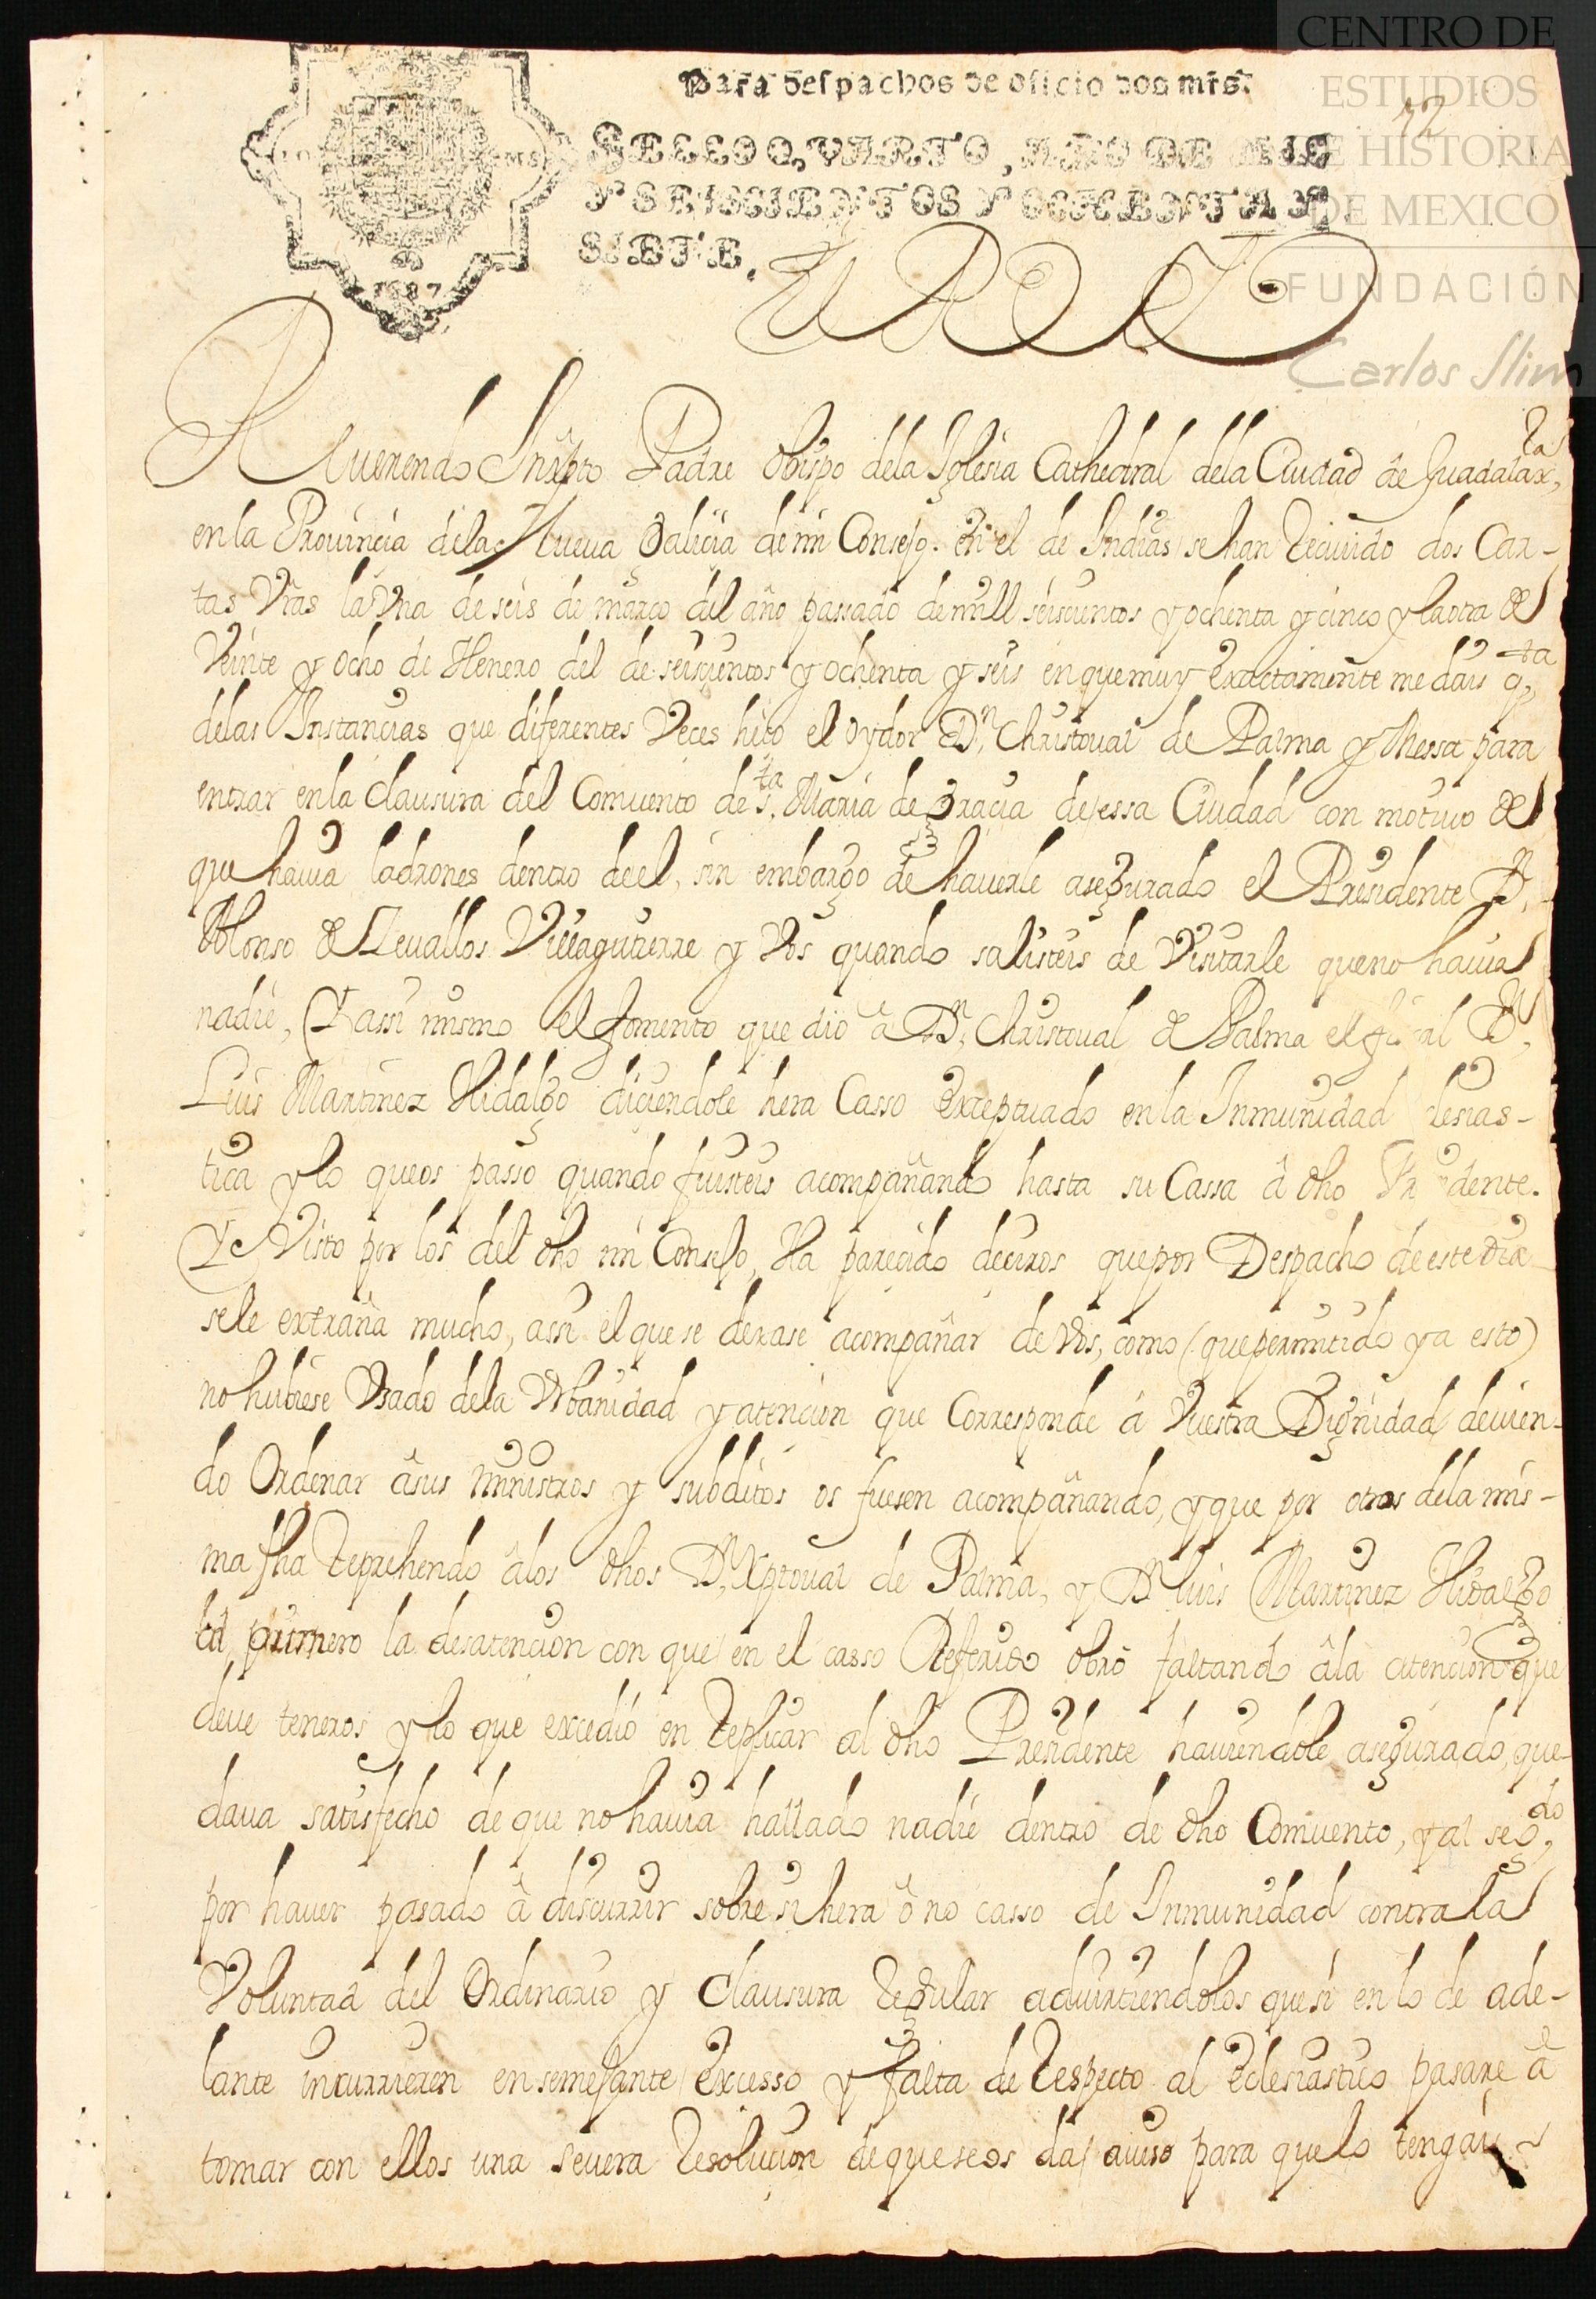 Para despachos de oficio dos mrs.
SELLO QVARTO, AÑO DE MIL
Y SEISCIENTOS Y OCHENTA Y
SIETE.
1687
El Rey
CENTRO DE
ESTUDIOS
DE HISTORIA
DE MEXICO
FUNDACIÓN
Carlos Slim
Reuerendo Inxpto Padre Obispo dela Iglesia Cathedral dela Ciudad de Guadalaxra,
en la Prouincia dela Nueua Galicia de mi Consejo. en el de Indias se han reciuido dos Car-
tas Vras la Vna de seis de março del año passado de mill seiscientos y ochenta y cinco y la otra de
Veinte y ocho de Henero del de seiscientos y ochenta y seis en que muy exactamente me dais qta
delas Instancias que diferentes Veces hiço el oydor Dn. Christoual de Palma y Messa para
entrar en la clausura del Comuento de sta. Maria de Gracia de essa Ciudad con motiuo de
que hauia ladrones dentro de el, sin embargo de hauerle asegurado el Presidente Dn.
Alonso de Zeuallos Villagutierre y Vos quando salisteis de Visitarle que no hauia
nadie, Y assi mismo el fomento que dio â Dn. Christoual de Palma el fiscal Dn.
Luis Martinez Hidalgo diciendole hera Casso exceptuado en la Inmunidad lesias-
tica y lo que os passo quando fuisteis acompañando hasta su Cassa â dho Pr dente.
Y Visto por los del dho mi Consejo, Ha parecido deciros que por Despacho de este dia
se le extraña mucho, assi el que se dexase acompañar de Vos, como (que permitido ya esto)
no hubiese Vsado dela Vrbanidad y atencion que Corresponde â Vuestra Dignidad deuien-
do Ordenar âsus ministros y subditos os fuesen acompañando, y que por otros dela mis-
ma fha reprehendo âlos dhos Dn. Xptoual de Palma, y Dn. Luis Martinez Hidalgo
al primero la desatencion con que en el casso Referido obrô faltando âla atencion que
deue teneros y lo que excediô en replicar al dho Presidente hauiendole asegurado, que-
daua satisfecho de que no hauia hallado nadie dentro de dho Comuento, y al segdo,
por hauer pasado â discurrir sobre si hera ô no casso de Inmunidad contra la
Voluntad del Ordinario y Clausura regular aduirtiendolos que si en lo de ade-
lante incurrieren en semejante Excesso y falta de respecto al Eclesiastico pasare â
tomar con ellos una seuera resolucion de que se os da auiso para que lo tengais